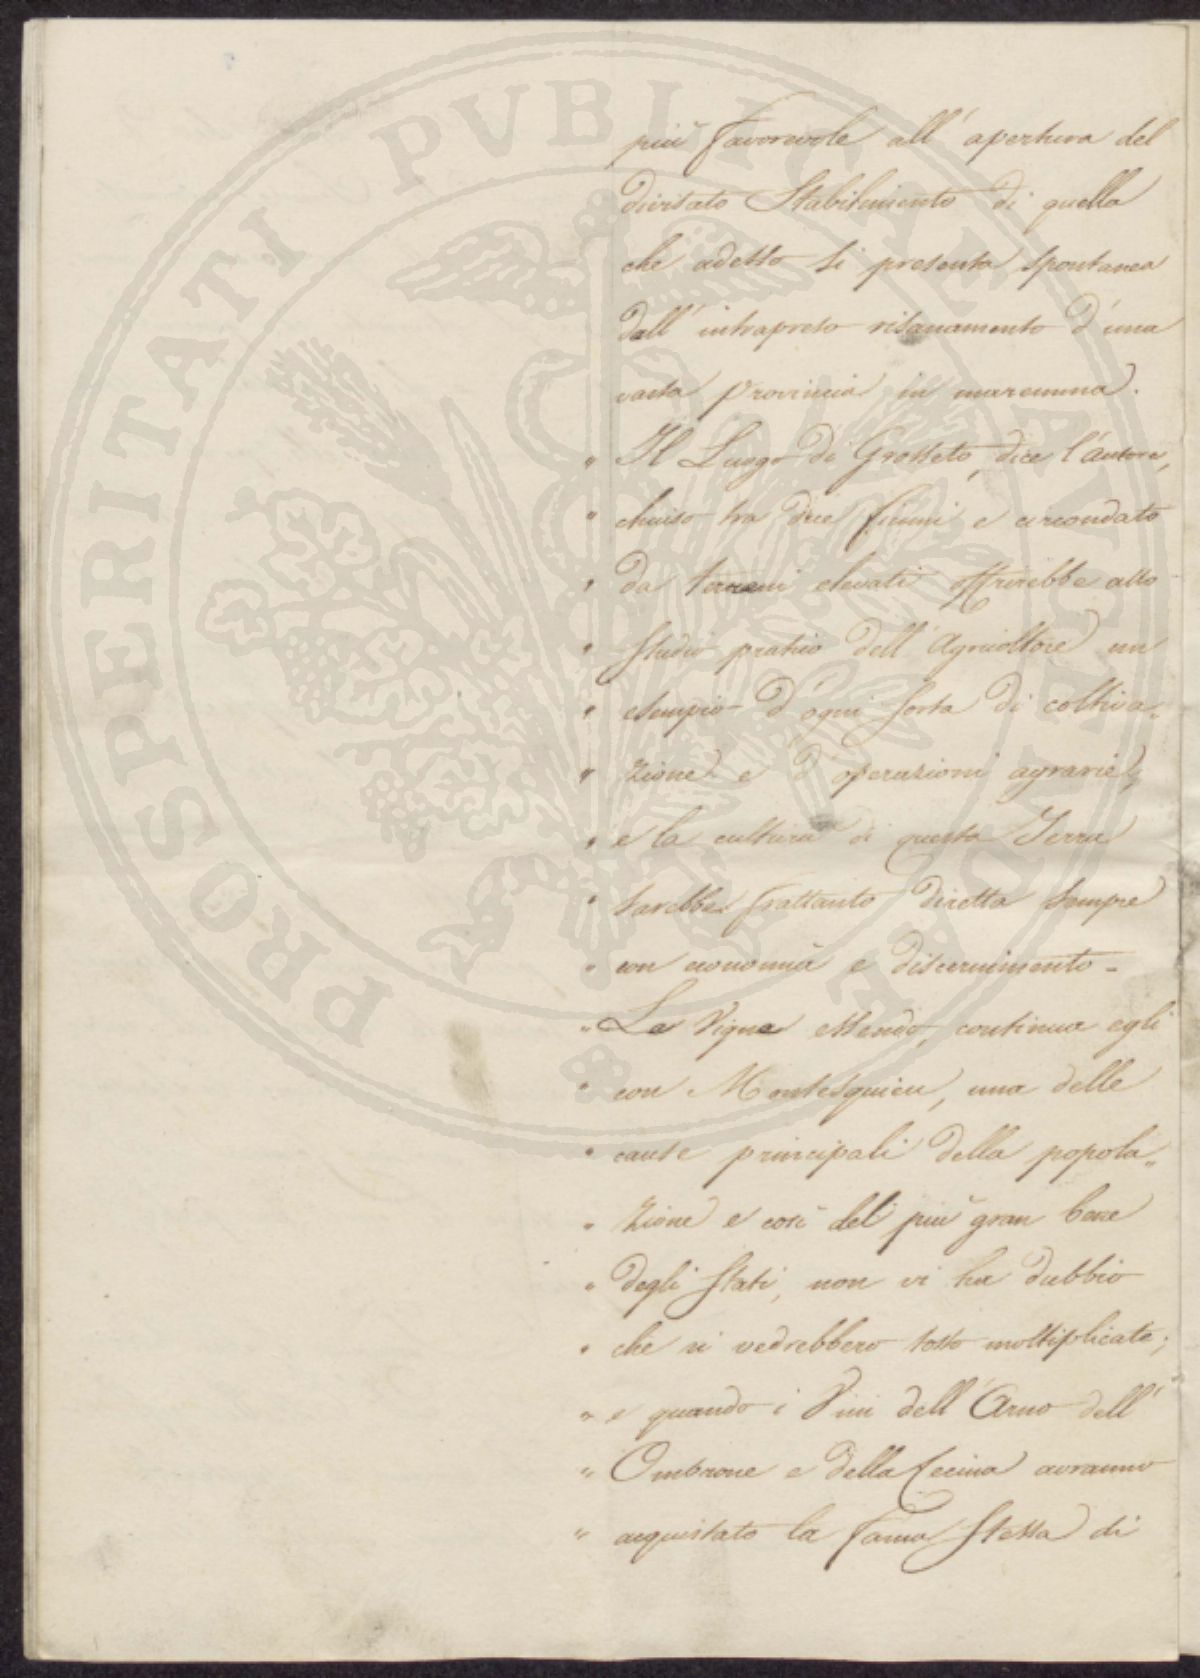 più favorevole all'apertura del
divisato Stabilimento di quella
che adesso si presenta spontanea
dall'intrapreso risanamento d'una
vasta Provincia in maremma.
" Il Luogo di Grosseto, dice l'autore,
" chiuso tra due fiumi e circondato
" da terreni elevati offrirebbe allo
" studio pratico dell'Agricoltore un
" esempio d'ogni sorta di coltiva„
" zione e d'operazioni agrarie;
" e la cultura di questa Terra
" sarebbe frattanto diretta sempre
" con economia e discernimento -
" Le Vigne essendo, continua egli
" con Montesquieu, una delle
" cause principali della popola„
" zione e così del più gran bene
" degli Stati, non vi ha dubbio
" che si vedrebbero tosto moltiplicate;
" e quando i Vini dell'Arno dell'
" Ombrone e della Cecina avranno
" acquistato la fama stessa di
PROSPERITATI PVBLICAE AVGENDAE